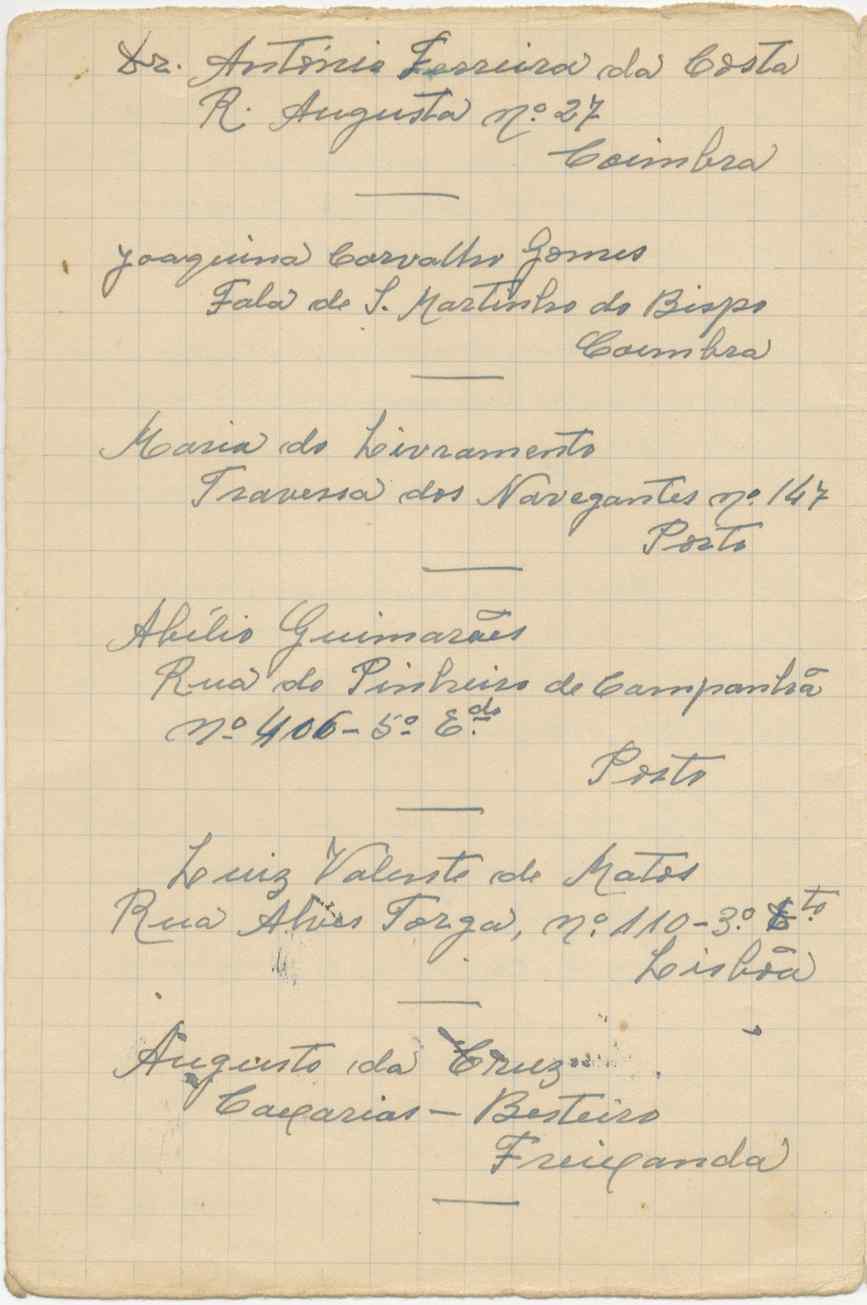 Dr. António Ferreira da Costa
R. Augusta nº 27
Coimbra
Joaquina Carvalho Gomes
Fala de S. Martinho do Bispo
Coimbra
Maria do Livramento
Travessa dos Navegantes nº 147
Porto
Abílio Guimarães
Rua do Pinheiro de Campanhã
nº 406 - 5º E.do
Porto
Luiz Valente de Matos
Rua Alves Torga, nº 110 - 3º to
Lisbôa
Augusto da Cruz
Caxarias - Besteiro
Freixanda